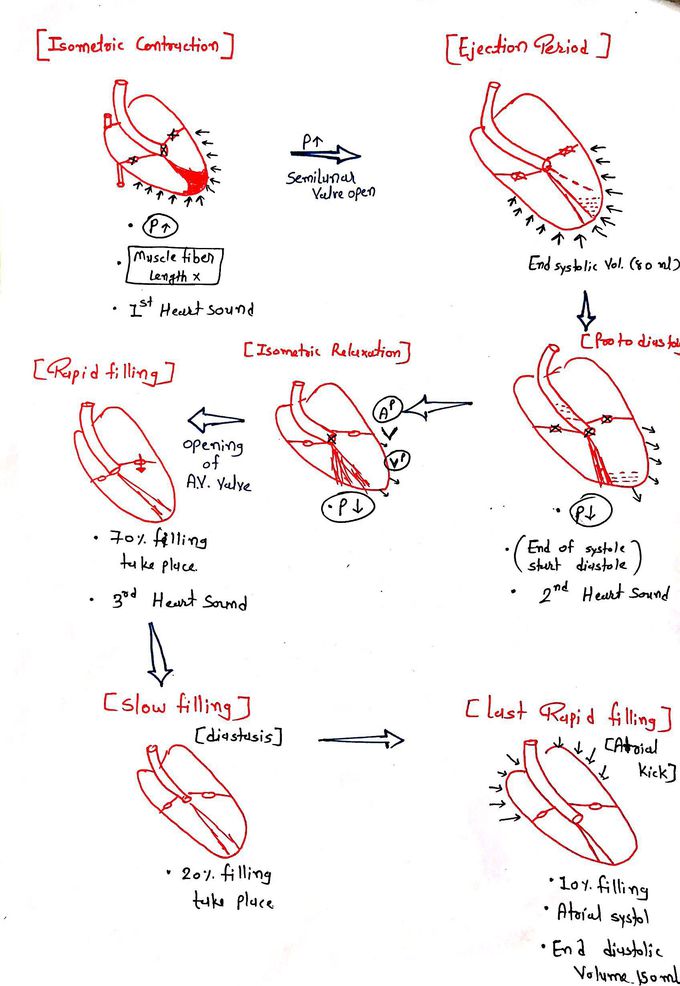 [Isometric Contraction]
P↑
Semilunar
Valve open
[Ejection Period]
• P↑
• Muscle fiber
Length x
• 1st Heart Sound
End systolic Vol. (80 ml)
[Proto diastoly
AP
V
VP
• P↓
• (End of systole
start diastole)
• 2nd Heart Sound
[Isometric Relaxation]
• P↓
opening
of
A.V. Valve
[Rapid filling]
• 70% filling
take place
• 3rd Heart Sound
[Slow filling]
[diastasis]
• 20% filling
take place
[Last Rapid filling]
[Atrial
Kick]
• 10% filling
• Atrial systol
• End diastolic
Volume 150ml